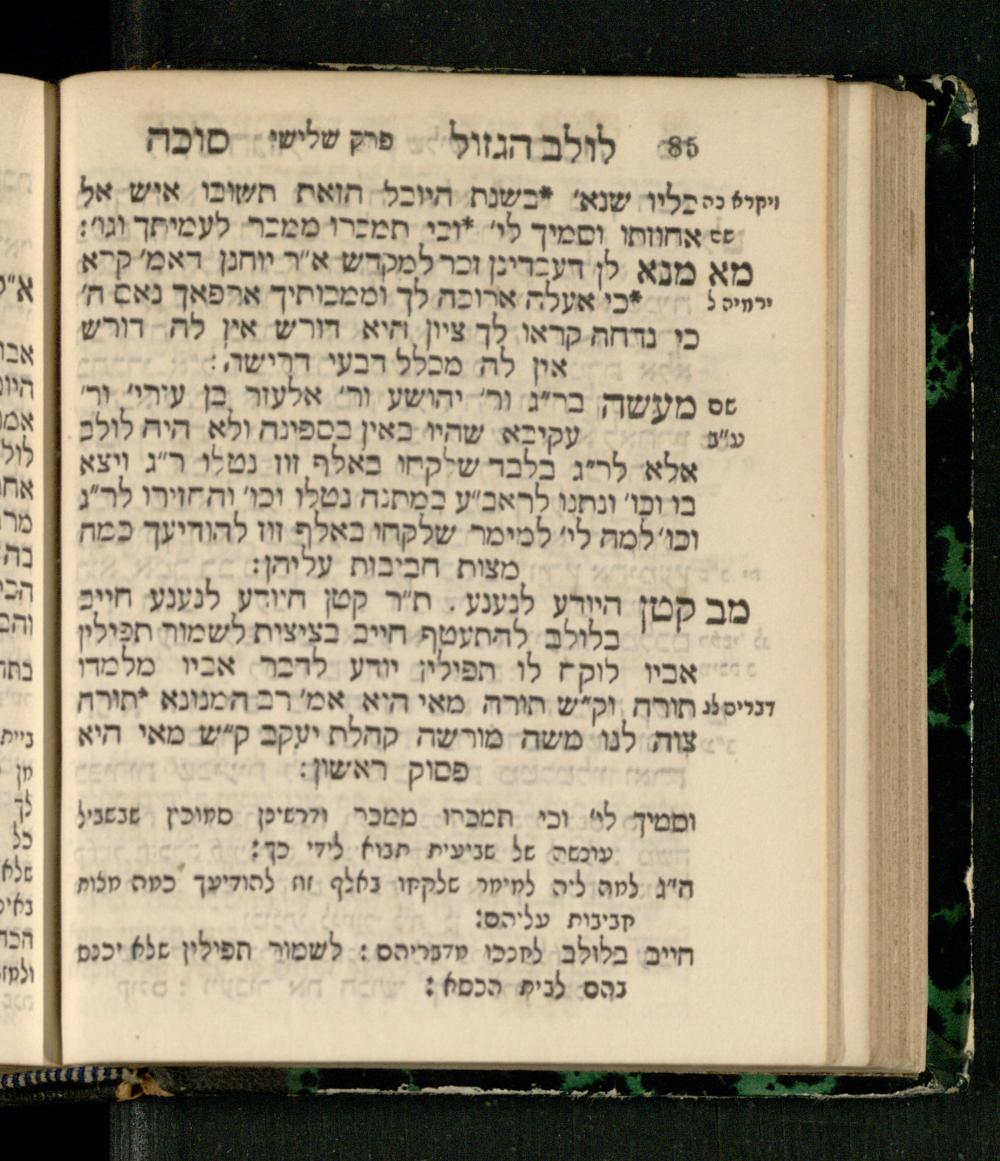 85 לולב הגזול פרק שלישי סוכה
ויקרא כה כליו שנא׳ *בשנת היובל הזאת תשובו איש אל
שם אחוזתו וסמיך לי׳ *וכי תמכרו ממכר לעמיתך וגו׳:
מא מנא לן דעבדינן זכר למקדש א״ר יוחנן דאמ׳ קרא
ירמיה ל *כי אעלה ארוכה לך וממכותיך ארפאך נאם ה׳
כי נדחה קראו לך ציון היא דורש אין לה דורש
אין לה מכלל דבעי דרישה:
שם מעשה בר״ג ור׳ יהושע ור׳ אלעזר בן עזרי׳ ור׳
ע״ב עקיבא שהיו באין בספינה ולא היה לולב
אלא לר״ג בלבד שלקחו באלף זוז נטלו ר״ג ויצא
בו וכו׳ ונתנו לראב״ע במתנה נטלו וכו׳ והחזירו לר״ג
וכו׳ למה לי׳ למימר שלקחו באלף זוז להודיעך כמה
מצות חביבות עליהן:
מב קטן היודע לנענע. ת״ר קטן היודע לנענע חייב
בלולב להתעטף חייב בציצית לשמור תפילין
אביו לוקח לו תפילין יודע לדבר אביו מלמדו
דברים לג תורה וק״ש תורה מאי היא אמ׳ רב המנונא *תורה
צוה לנו משה מורשה קהלת יעקב ק״ש מאי היא
פסוק ראשון:
וסמיך לי׳ וכי תמכרו ממכר ודרשינן סמוכין שבשביל
עונשה של שביעית תבוא לידי כך:
ה״ג למה ליה למימר שלקחו באלף זוז להודיעך כמה מצות
חביבות עליהם:
חייב בלולב לחנכו מדבריהם: לשמור תפילין שלא יכנס
בהם לבית הכסא: